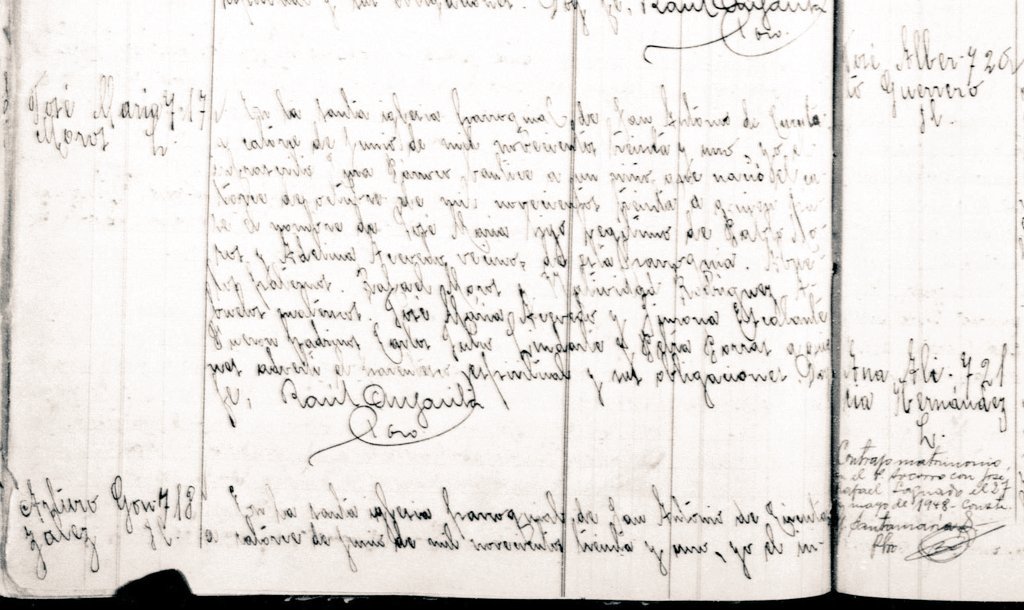 espiritual y sus obligaciones. Doy fe, Raúl
Pbro.
José María 717
Moros
L.
En la santa iglesia parroquial de San Antonio de Cúcuta
a catorce de junio de mil novecientos treinta y uno, yo, el
bauticé a un niño que nació el ca
torce de octubre de mil novecientos treinta a quien pu
se el nombre de José María hijo legítimo de Pablo Mo
ros y Adelina Acevedo, vecinos de esta parroquia. Abue
los paternos: Rafael Moros y Rodríguez. A
buelos maternos: José María Acevedo y Escalante
Fueron padrinos Carlos Julio y Porras a quie
nes advertí el parentesco espiritual y sus obligaciones. Doy
fe, Raúl
Pbro.
Arturo Gon 718
zález
H.
En la santa iglesia parroquial de San Antonio de Cúcuta
a catorce de junio de mil novecientos treinta y uno, yo el in-
José Alber- 720
to Guerrero
H.
Ana Ali- 721
cia Hernández
L.
Contrajo matrimonio
en el P. Socorro con José
Rafael el 27
mayo de 1948. Const.
Santamaría
Pbro